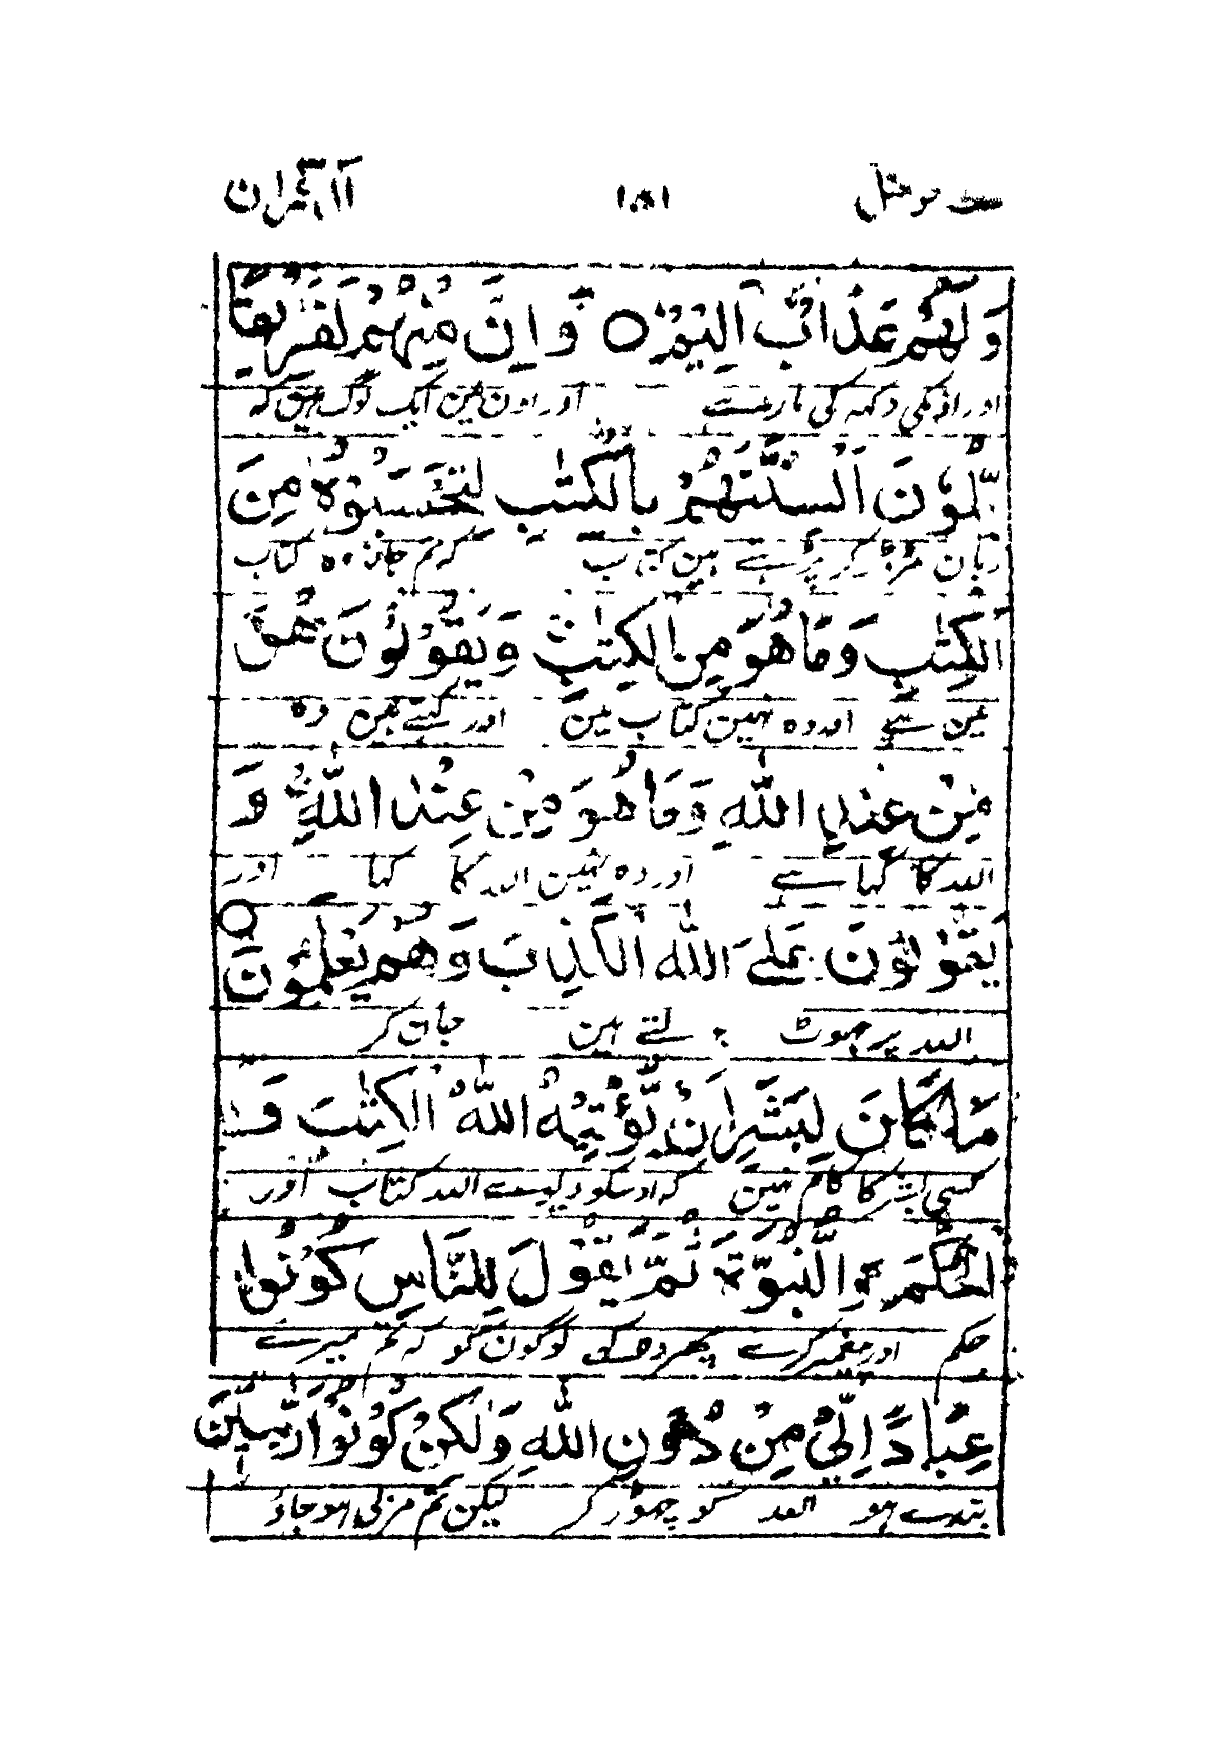 آل عمران
وَلَهُمْ عَذَابٌ اَلِيْمٌ ○ وَاِنَّ مِنْهُمْ لَفَرِيْقًا
اور اونکی دکہہ کی مار ہے اور اون مین ایک لوگ ہین کہ
يَّلْوٗنَ اَلْسِنَتَهُمْ بِالْكِتٰبِ لِتَحْسَبُوْهُ مِنَ
زبان مروڑ کر پڑہتے ہین کتاب کہ تم جانو وہ کتاب
الْكِتٰبِ وَمَا هُوَ مِنَ الْكِتٰبِ وَيَقُوْلُوْنَ هُوَ
مین ہے اور وہ نہین کتاب مین اور کہتے ہین وہ
مِنْ عِنْدِ اللّٰهِ وَمَا هُوَ مِنْ عِنْدِ اللّٰهِ وَ
اللہ کا کہا ہے اور وہ نہین اللہ کا کہا اور
يَقُوْلُوْنَ عَلَى اللّٰهِ الْكَذِبَ وَهُمْ يَعْلَمُوْنَ ○
اللہ پر جہوٹ ہین جان کر
مَا كَانَ لِبَشَرٍ اَنْ يُّؤْتِيَهُ اللّٰهُ الْكِتٰبَ وَ
کسی بشر کا کام نہین کہ اوسکو دیوے اللہ کتاب اور
الْحُكْمَ وَالنُّبُوَّةَ ثُمَّ يَقُوْلَ لِلنَّاسِ كُوْنُوْا
حکم اور پیغمبر کرے پہر وہ کہی لوگون کو کہ تم میرے
عِبَادًا لِّيْ مِنْ دُوْنِ اللّٰهِ وَلٰكِنْ كُوْنُوْا رَبّٰنِيّٖنَ
بندے ہو اللہ کو چہوڑ کر لیکن تم مربی ہو جاؤ